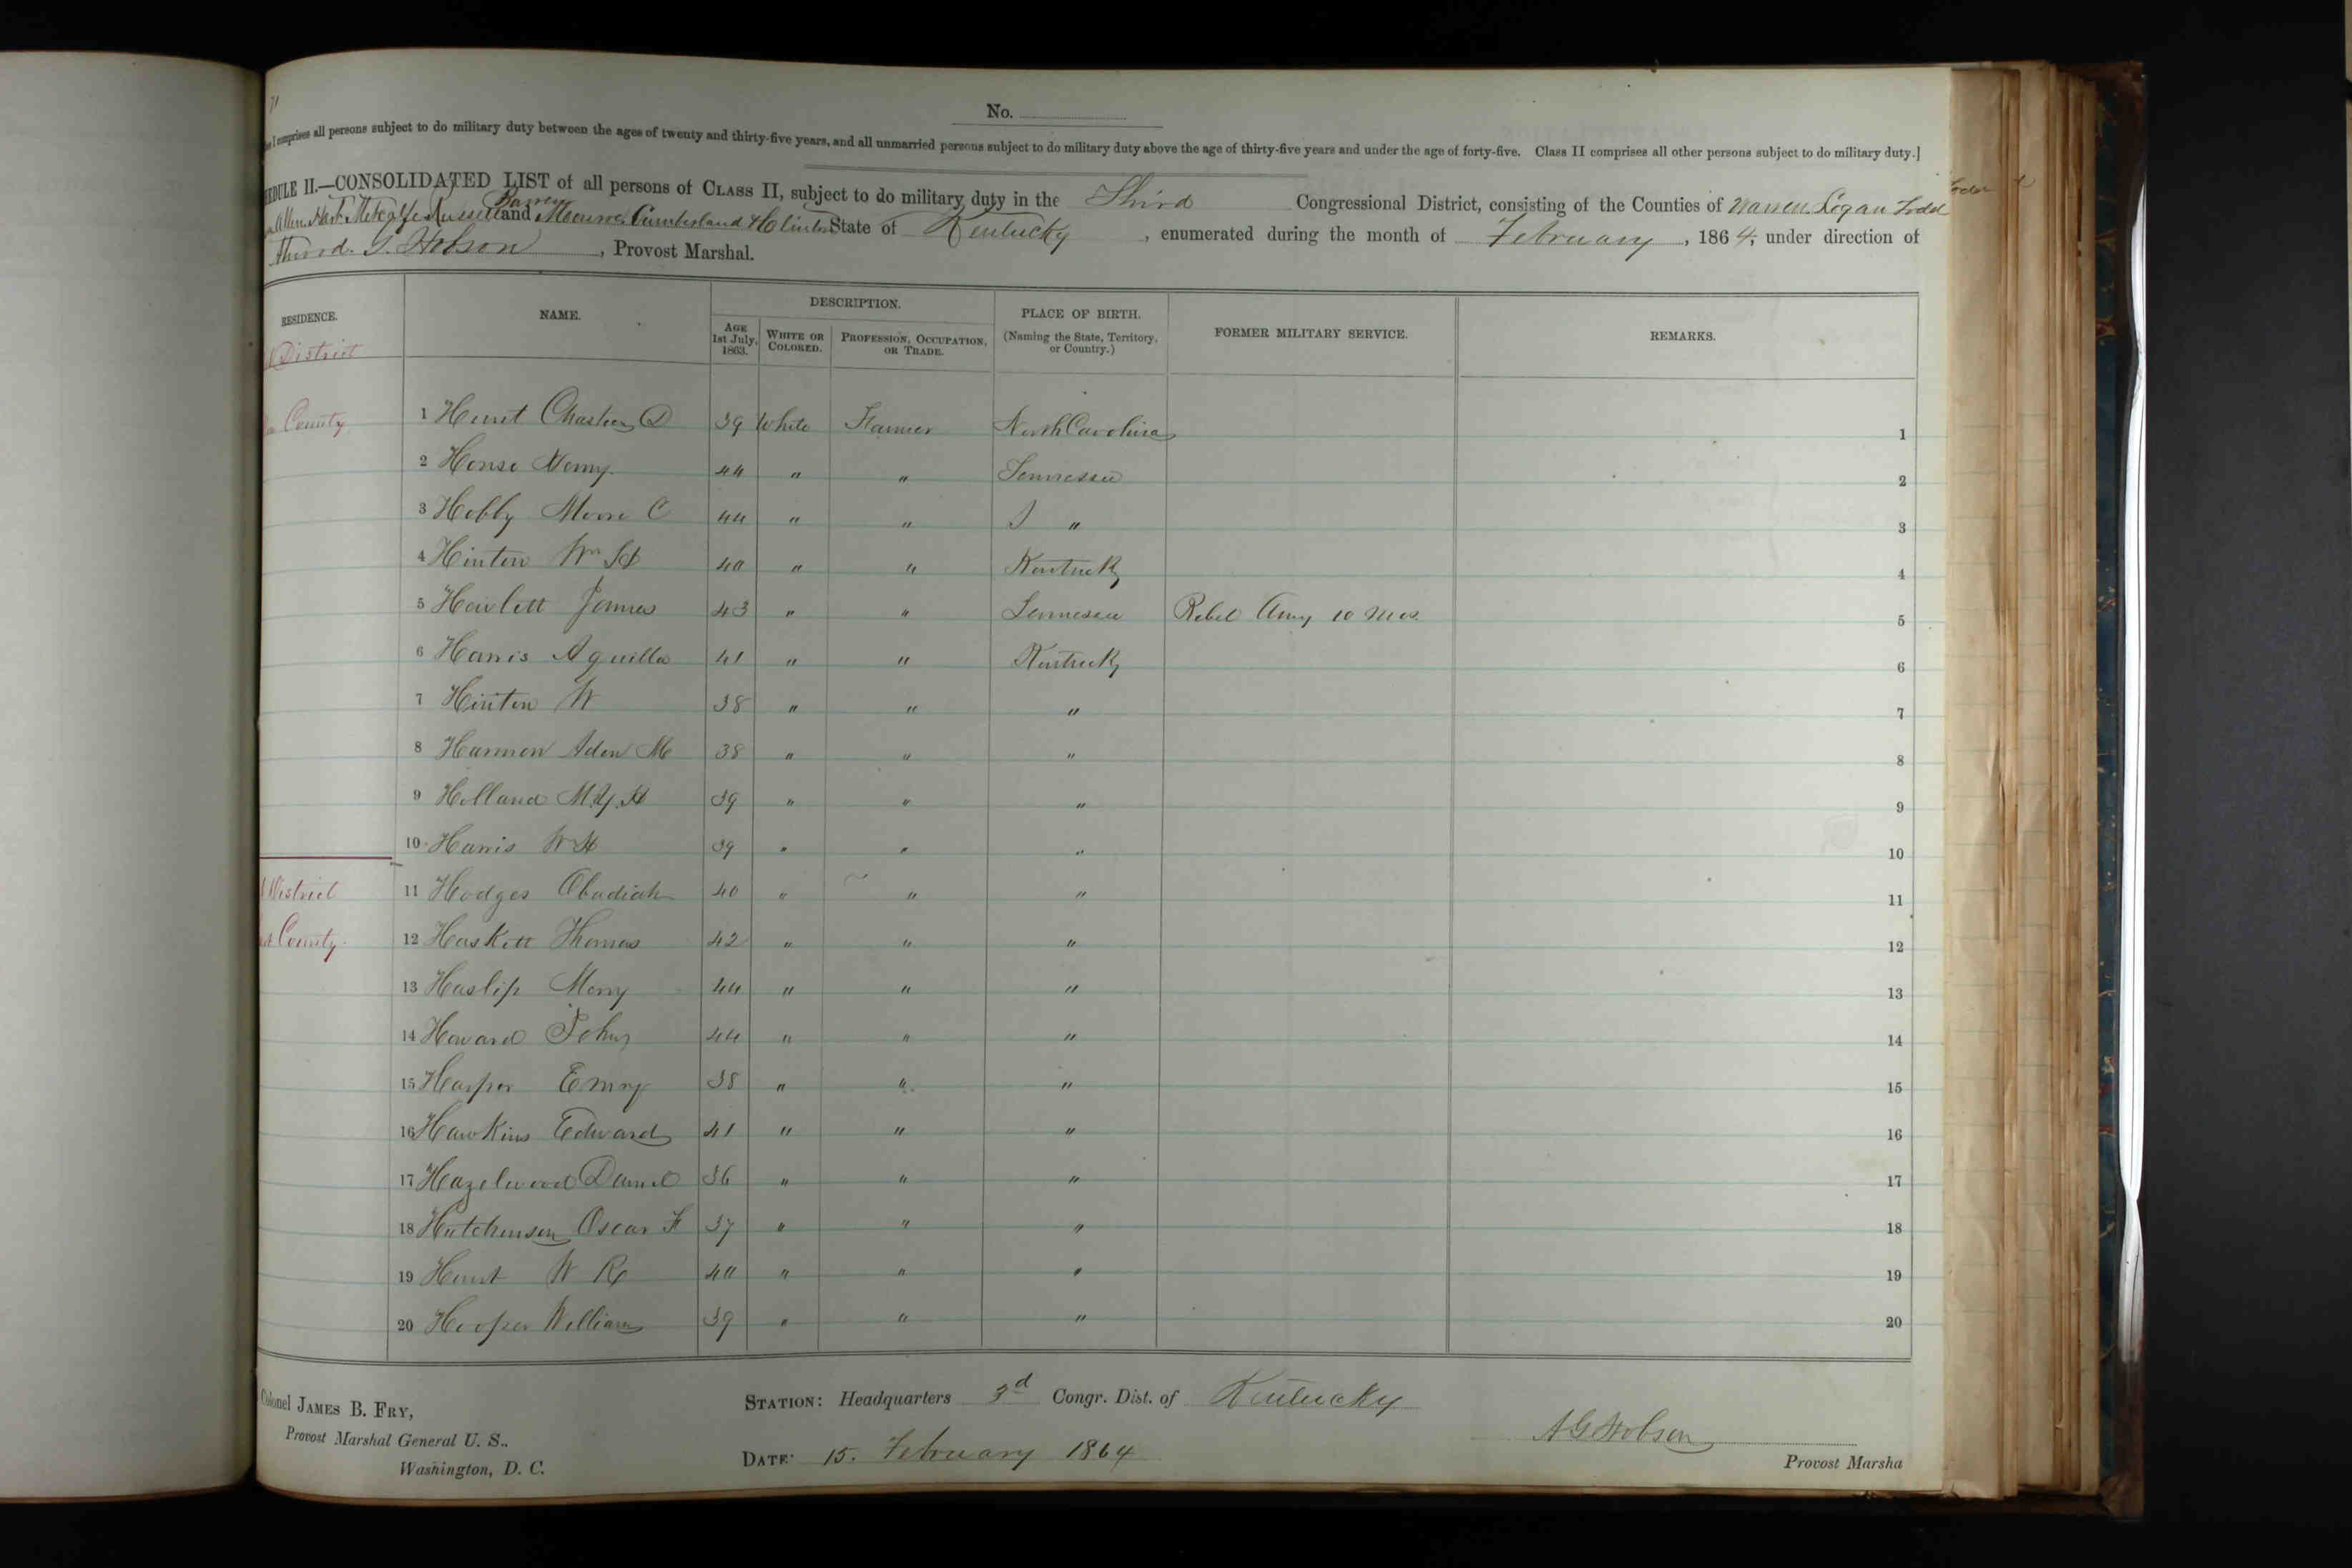 71
No.
I comprises all persons subject to do military duty between the ages of twenty and thirty-five years, and all unmarried persons subject to do military duty above the age of thirty-five years and under the age of forty-five. Class II comprises all other persons subject to do military duty.]
EDULE II.—CONSOLIDATED LIST of all persons of CLASS II, subject to do military duty in the Third Congressional District, consisting of the Counties of Warren Logan Todd
Allen Hart Metcalfe Russell Barren and Monroe Cumberland & Clinton State of Kentucky, enumerated during the month of February, 1864, under direction of
G. Hobson, Provost Marshal.
RESIDENCE. NAME. DESCRIPTION. PLACE OF BIRTH. (Naming the State, Territory, or Country.) FORMER MILITARY SERVICE. REMARKS.
AGE 1st July, 1863. WHITE OR COLORED. PROFESSION, OCCUPATION, OR TRADE.
District
County 1 Hunt D 39 White Farmer North Carolina 1
2 House 44 " " Tennessee 2
3 Hobby Moore C 44 " " " 3
4 Hinton Wm H 40 " " Kentucky 4
5 Howlett James 43 " " Tennessee Rebel Army 10 Mos. 5
6 Harris Aquilla 41 " " Kentucky 6
7 Hinton W 38 " " " 7
8 Harmon Aden M 38 " " " 8
9 Holland M.Y.H 39 " " " 9
10 Harris W H 39 " " " 10
District 11 Hodges Obadiah 40 " " " 11
County 12 Haskett Thomas 42 " " " 12
13 Haslip Merry 44 " " " 13
14 Howard John 44 " " " 14
15 Harper Emry 38 " " " 15
16 Hawkins Edward 41 " " " 16
17 Hazelwood Daniel 36 " " " 17
18 Hutchinson Oscar F 37 " " " 18
19 Hunt W R 40 " " " 19
20 Hooper William 39 " " " 20
Colonel JAMES B. FRY,
Provost Marshal General U. S.,
Washington, D. C.
STATION: Headquarters 3d Congr. Dist. of Kentucky
DATE: 15. February 1864
A G Hobson
Provost Marsha